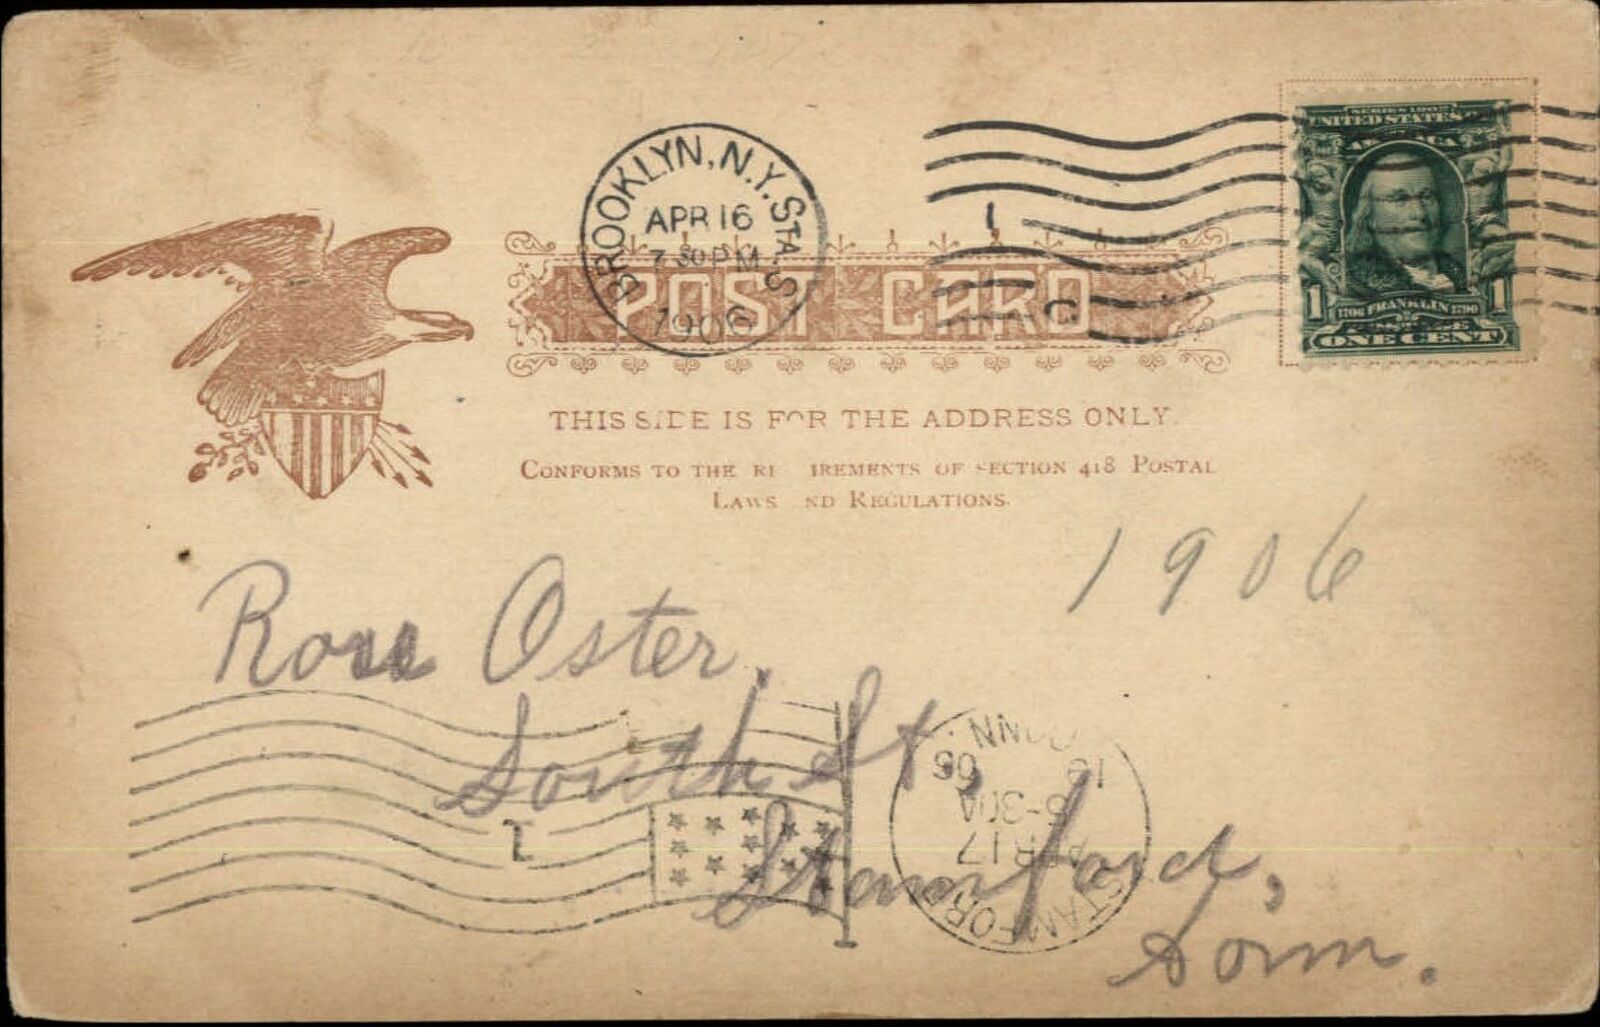 BROOKLYN, N.Y. STA. S
APR 16
7 30 PM
1906
1
C
SERIES 1902
UNITED STATES OF
AMERICA
1 1706 FRANKLIN 1790 1
POSTAGE
ONE CENT
POST CARD
THIS SIDE IS FOR THE ADDRESS ONLY.
CONFORMS TO THE RE IREMENTS OF SECTION 418 POSTAL
LAWS ND REGULATIONS.
1906
Rose Oster,
South St,
Stamford,
Conn.
STAMFORD CONN.
APR 17
5-30A
06
1